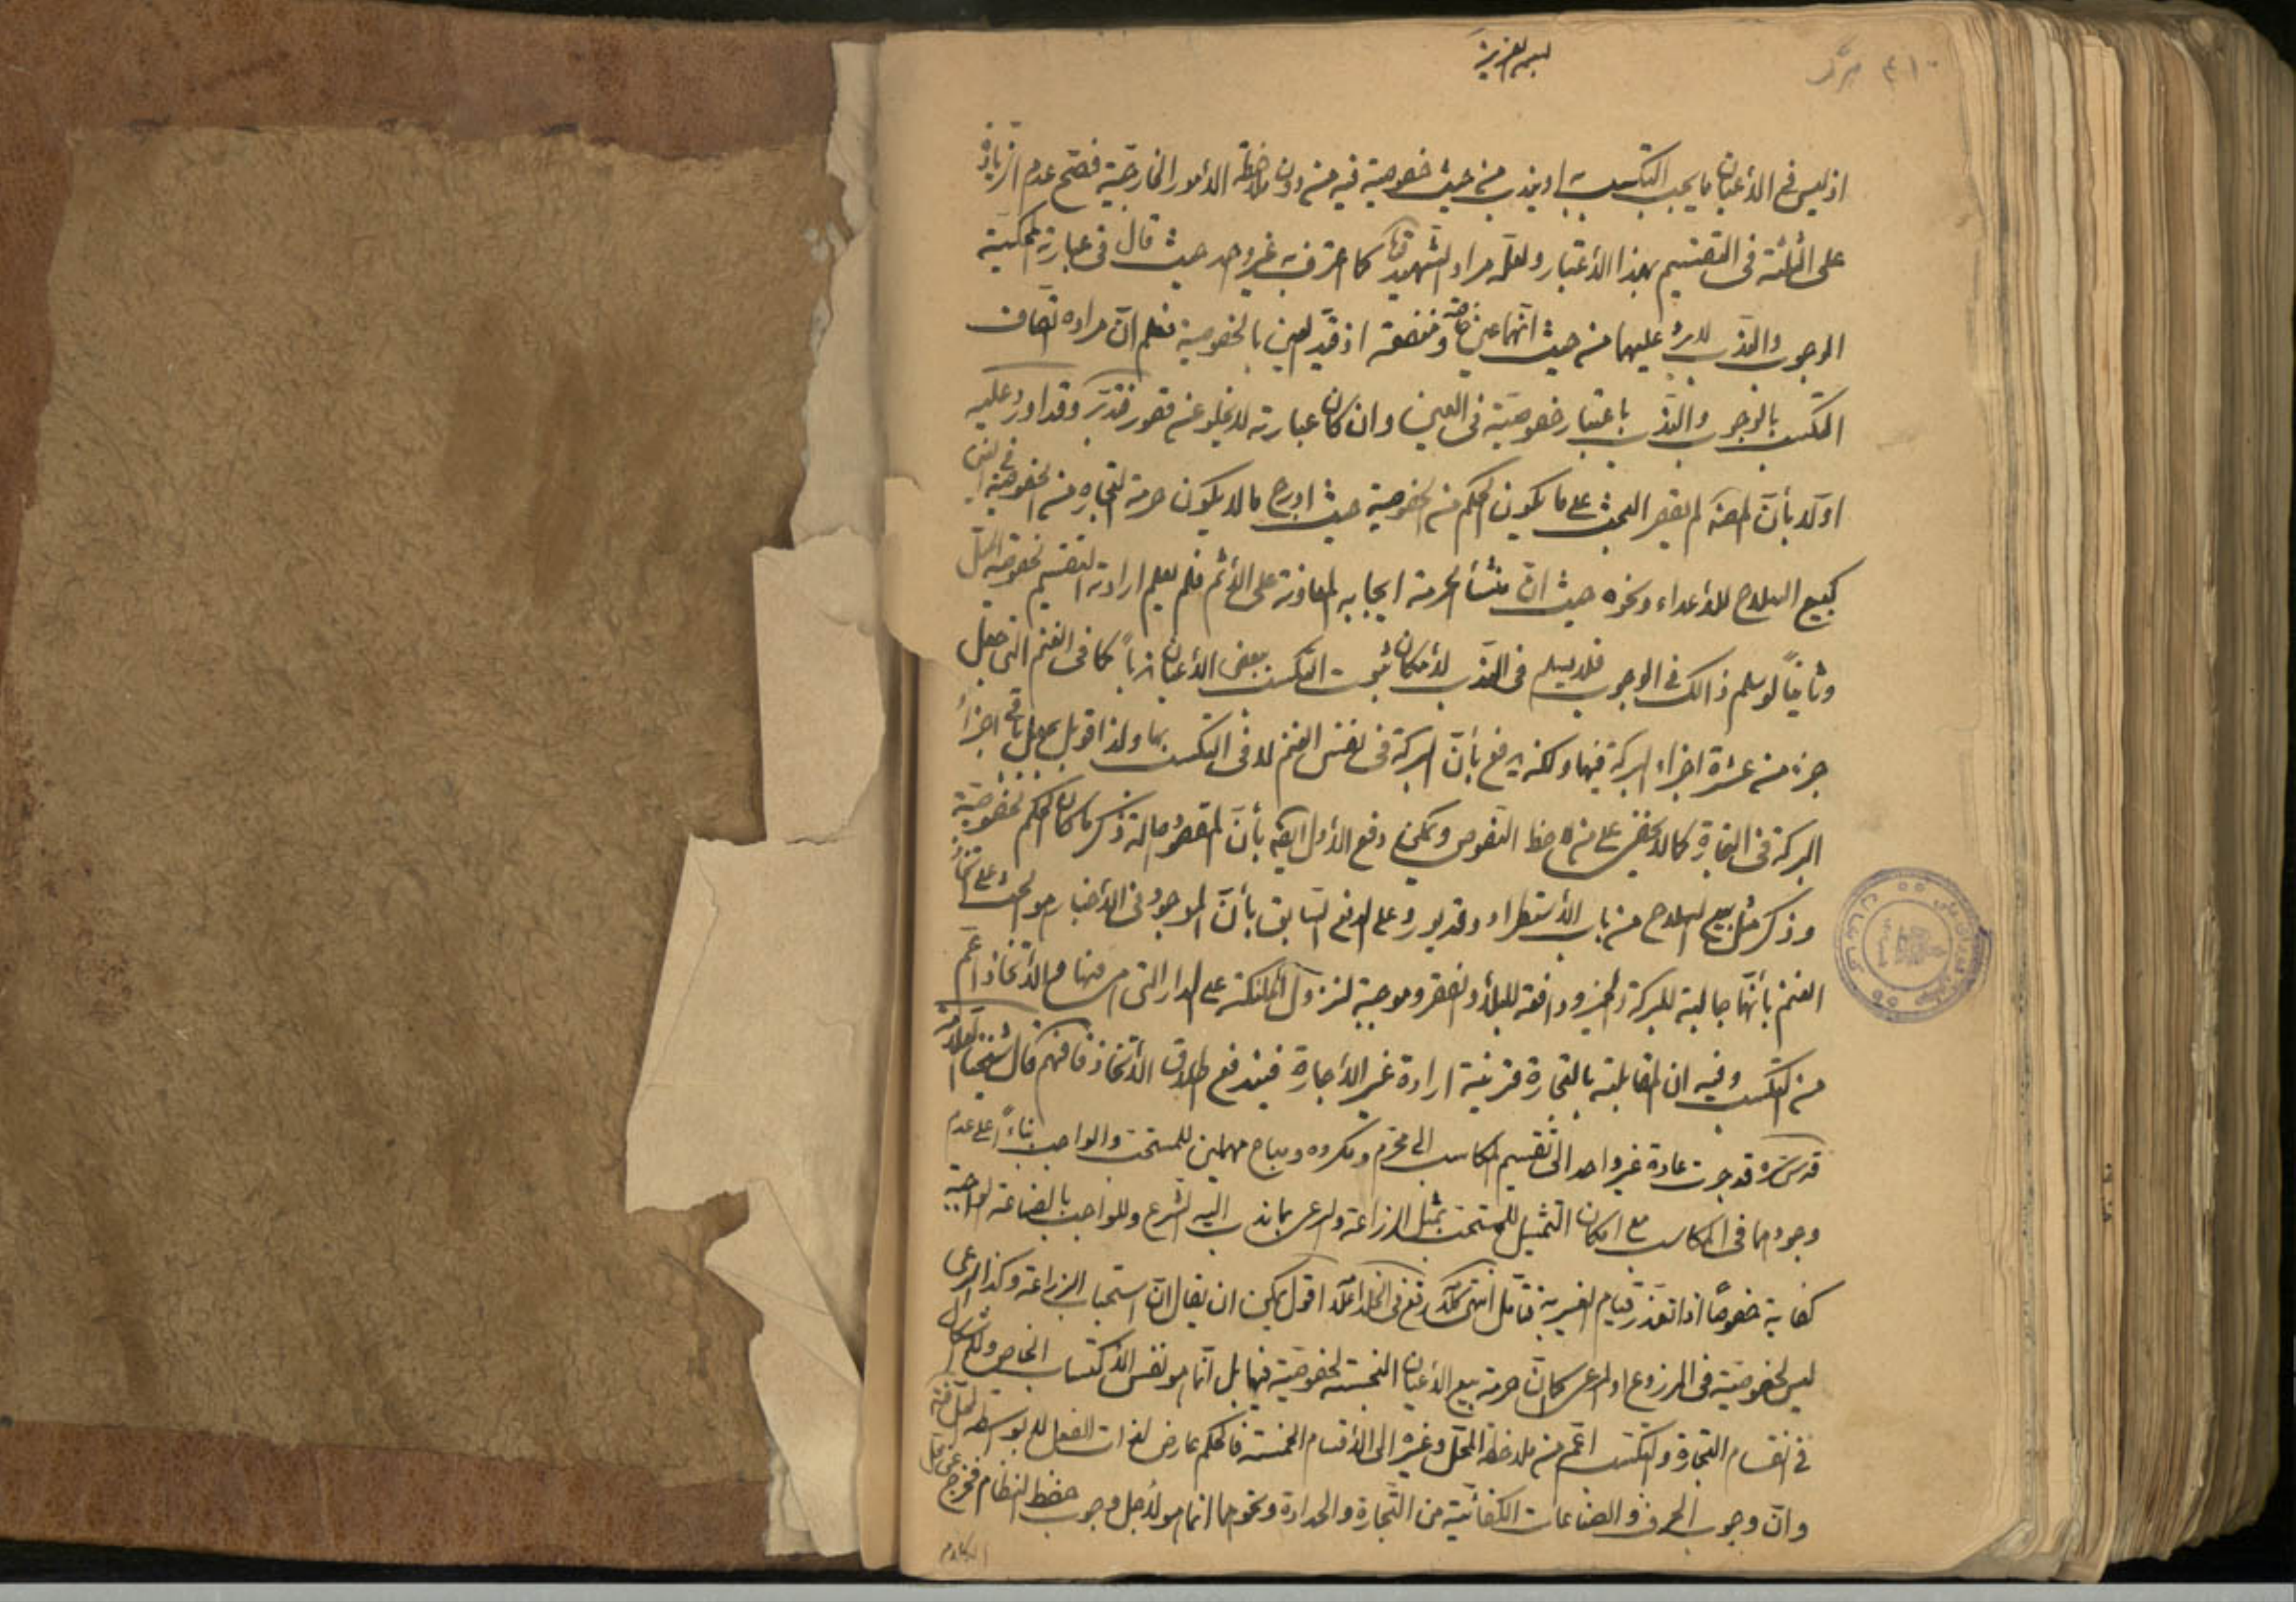 اذ ليس فى الأعيان ما يجب التكسب به او يندب من حيث خصوصية فيه من دون ملاحظة الأمور الخارجية فصح عدم الزيادة
على الثلثة فى التقسيم بهذا الأعتبار ولعله مراد الشهيد كما اعترف به غير واحد حيث قال فى عبارته المحكية
الوجوب والندب لا يرد عليهما من حيث انهما عين خاصة ومنفعة اذ قيد العين بالخصوصية فعلم انّ مراده اتصاف
التكسب بالوجوب والندب باعتبار خصوصيّة فى العين وان كان عبارته لا يخلو عن قصور فتدبّر وقد اورد عليه
اوّلا بأنّ المصنف لم يقصر البحث على ما يكون الحكم من الخصوصية حيث ادرج ما لا يكون حرمة التجارة من الخصوصية فى العين
كبيع السلاح للأعداء ونحوه حيث انّ منشأ الحرمة ايجابه المعاونة على الأثم فلم يعلم ارادته التقسيم لخصوصية المحل
وثانياً لو سلم ذالك فى الوجوب فلا يسلم فى الندب لأمكان ثبوت التكسب ببعض الأعيان ندباً كما فى الغنم التى جعل
جزء من عشرة اجزاء البركة فيها ولكنه يدفع بأنّ البركة فى نفس الغنم لا فى التكسب بها ولذا قوبل بجعل باقى اجزاء
البركة فى التجارة كما لا يخفى على من له حظ النصوص ويمكن دفع الأول ايضا بأنّ المقصود اصالة ذكر ما كان الحكم لخصوصيّة
وذكر مثل بيع السلاح من باب الأستطراد وقد يورد على الدفع السابق بأنّ الموجود فى الأخبار هو الحث على اتخاذ
الغنم بأنّها جالبة للبركة والخير ودافعة للبلاء والفقر وموجبة لنزول الملئكة على الدار التى هى فيها والأتخاذ اعمّ
من التكسب وفيه ان المقابلة بالتجارة قرينة ارادة غير الأجارة فيندفع اطلاق الأتخاذ فافهم قال شيخنا العلامة
قدس سره قد جرت عادة غير واحد الى تقسيم المكاسب الى محرّم ومكروه ومباح مهملين للمستحب والواجب بناءً على عدم
وجودهما فى المكاسب مع امكان التمثيل للمستحب بمثل الزراعة والرعى بما ندب اليه الشرع وللواجب بالصناعة الواجبة
كفاية خصوصًا اذا تعذّر قيام الغير به فتأمل انتهى كلامه رفع فى الخلد اعلامه اقول يمكن ان يقال انّ استحباب الزراعة وكذا الرعى
ليس لخصوصيّة فى المزروع او المرعى كما انّ حرمة بيع الأعيان النجسة لخصوصيّة فيها بل انّما هو نفس الأكتساب الخاص
فى انقسام التجارة والتكسب اعمّ من ملاحظة المحلّ وغيره الى الأقسام الخمسة فالحكم عارض لذات الفعل لا بواسطة المحل
وانّ وجوب الحرف والصناعات الكفائيّة من التّجارة والحدادة ونحوهما انّما هو لأجل وجوب حفظ النظام فخرج عن
الكلام